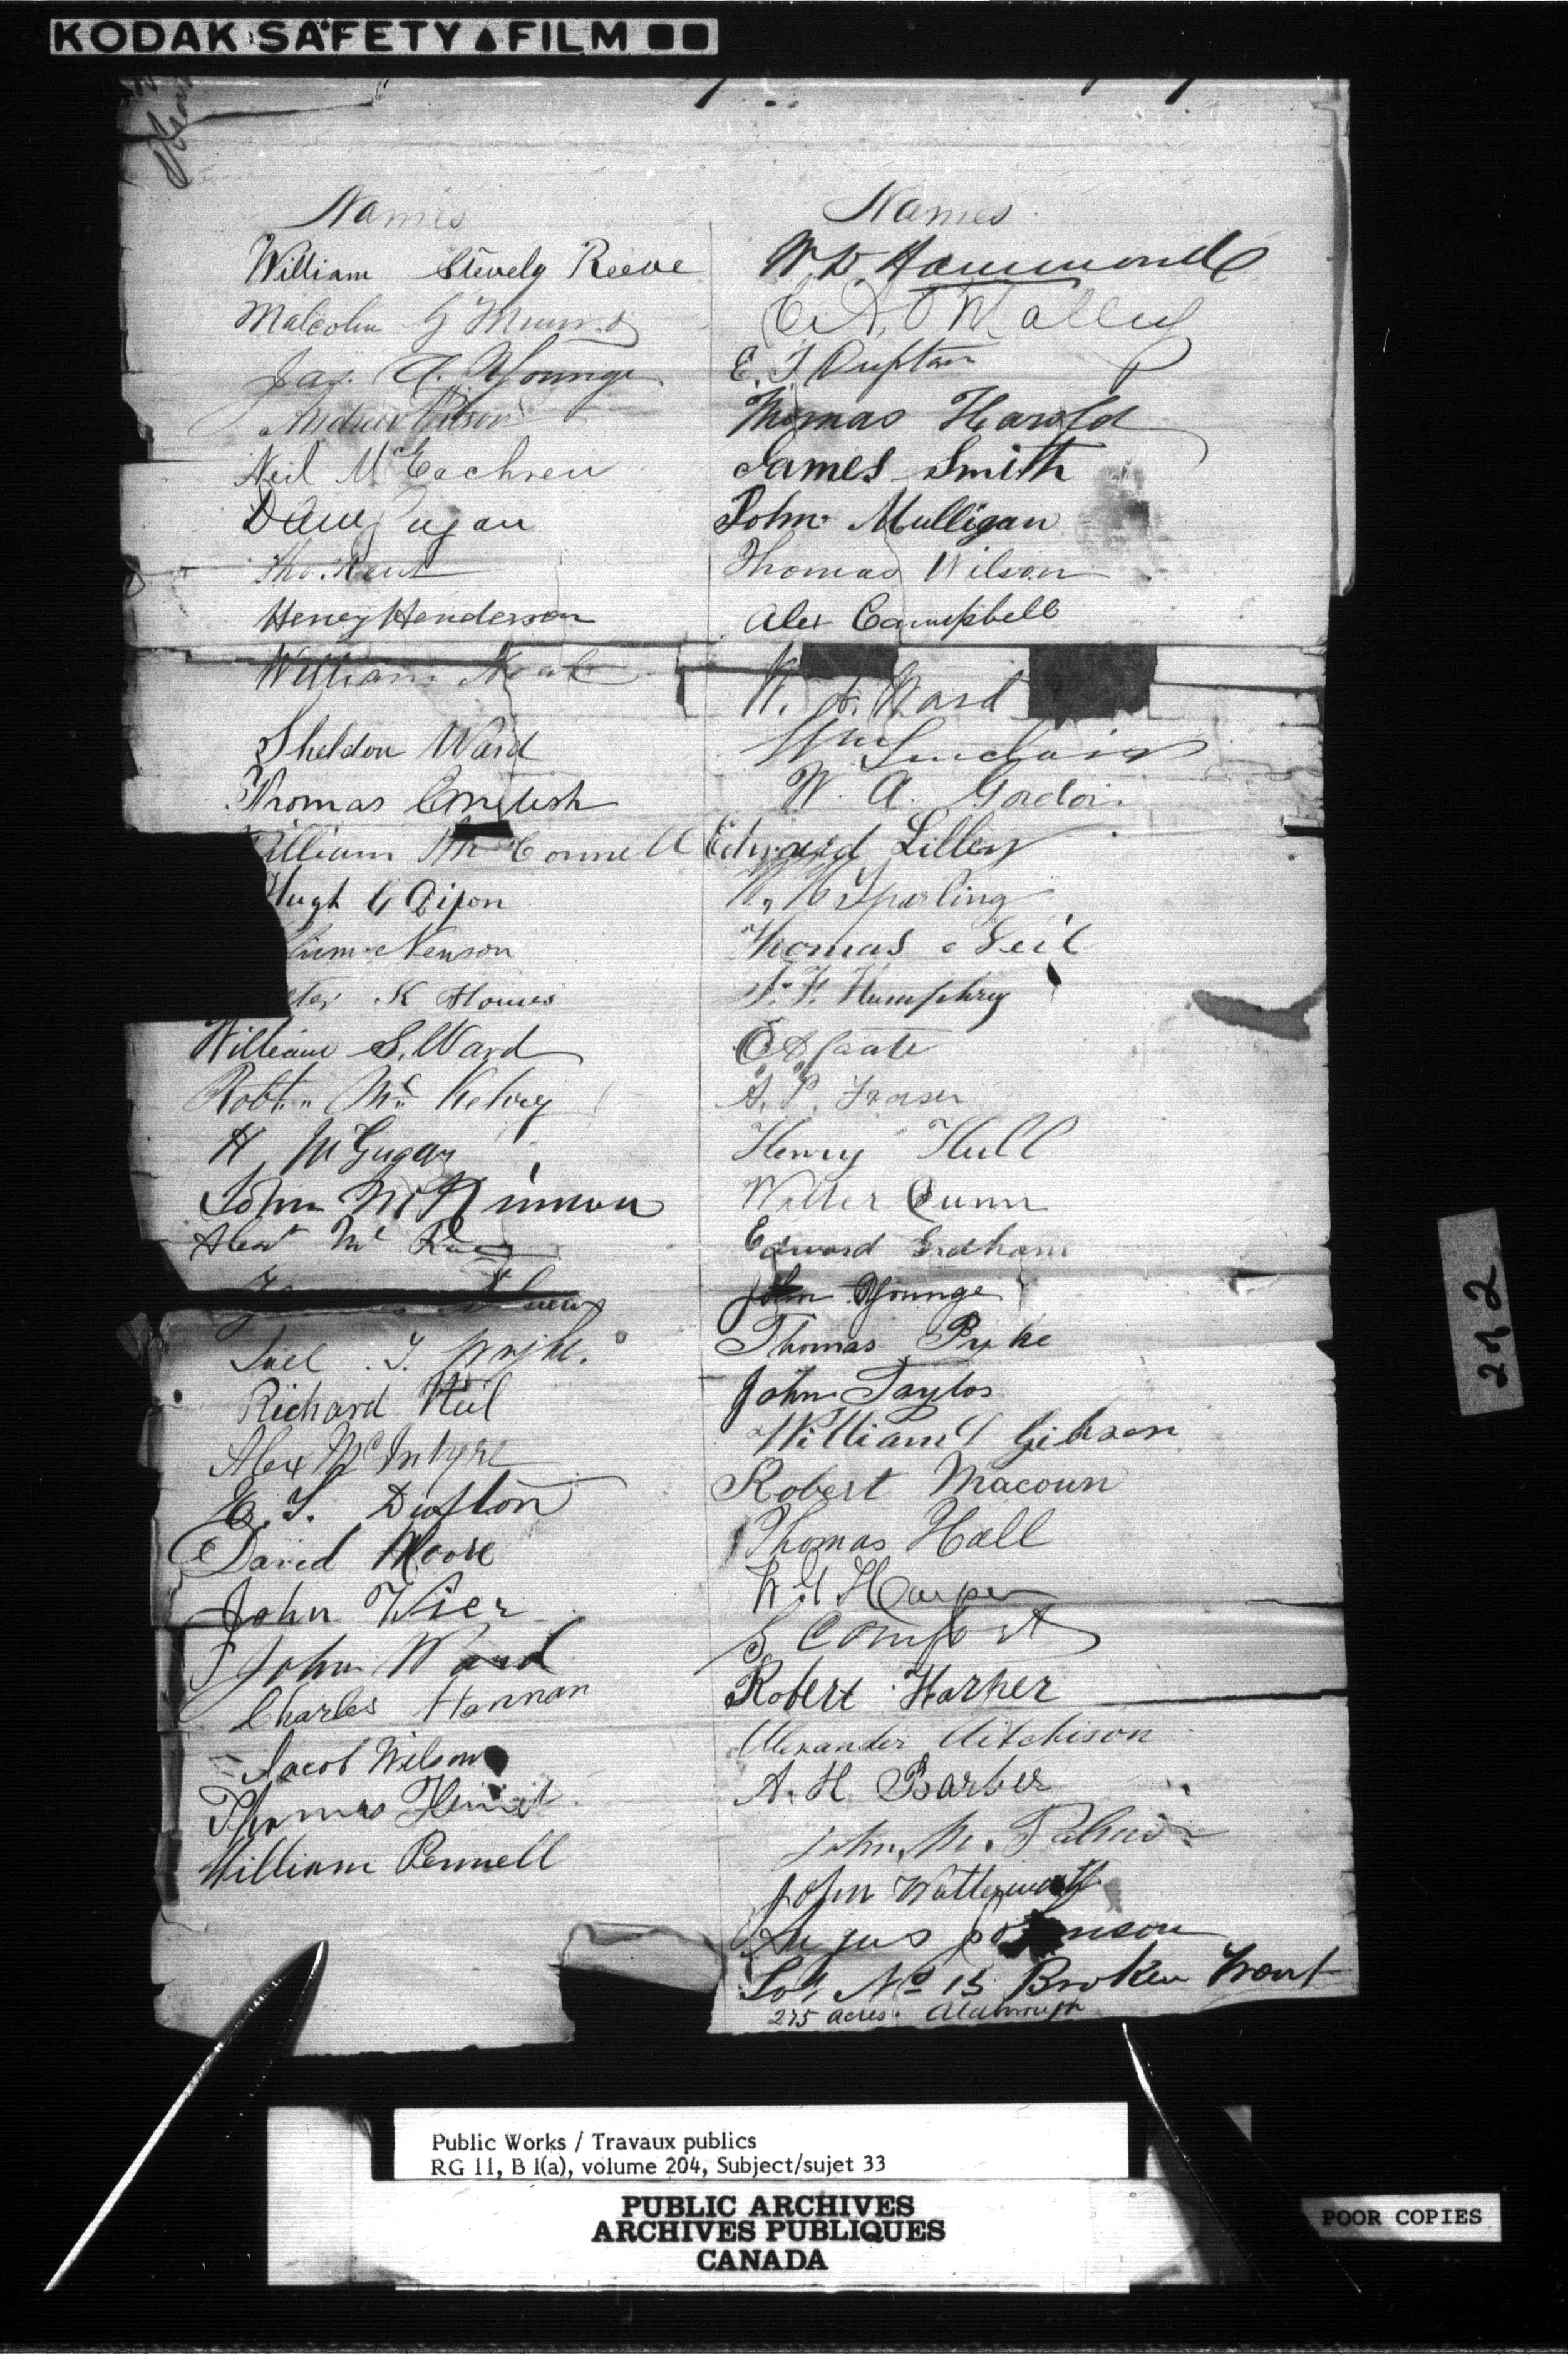 KODAK SAFETY FILM
Names
William Stevely Reeve
Malcolm G Munro
Jas. A. Younge
Andrew Wilson
Neil McEachren
Dan
Tho. Kent
Henry Henderson
William Neal
Sheldon Ward
Thomas English
illiam McConnell
Hugh G Dixon
liam Newson
eter K Homes
William S. Ward
Robt. Mc Kelvy
H McGugan
John McKinnon
Alexr Mc Rae
Joel T. Wright
Richard Neil
Alex McIntyre
E. T. Dufton
David Moore
John Wier
John Ward
Charles Hannan
Jacob Wilson
Thomas
William Pennell
Names
W D Hammond
C A O'Malley
E. T Dufton
Thomas Harold
James Smith
John Mulligan
Thomas Wilson
Alex Campbell
W. A. Ward
Wm Sinclair
W. A. Gordon
Edward Lilley
W. H Sparling
Thomas Neil
F. Humphrey
A. P. Fraser
Henry Hull
Walter Dunn
Edward
John Younge
Thomas Pyke
John Taylor
William Gibson
Robert Macoun
Thomas Hall
W G Harper
S Comfort
Robert Harper
Alexander Aitchison
A. H Barber
John M. Palmer
John Watterworth
Angus Johnson
Lot No 15 Broken Front
275 acres Aldborough
272
Public Works / Travaux publics
RG 11, B 1(a), volume 204, Subject/sujet 33
PUBLIC ARCHIVES
ARCHIVES PUBLIQUES
CANADA
POOR COPIES